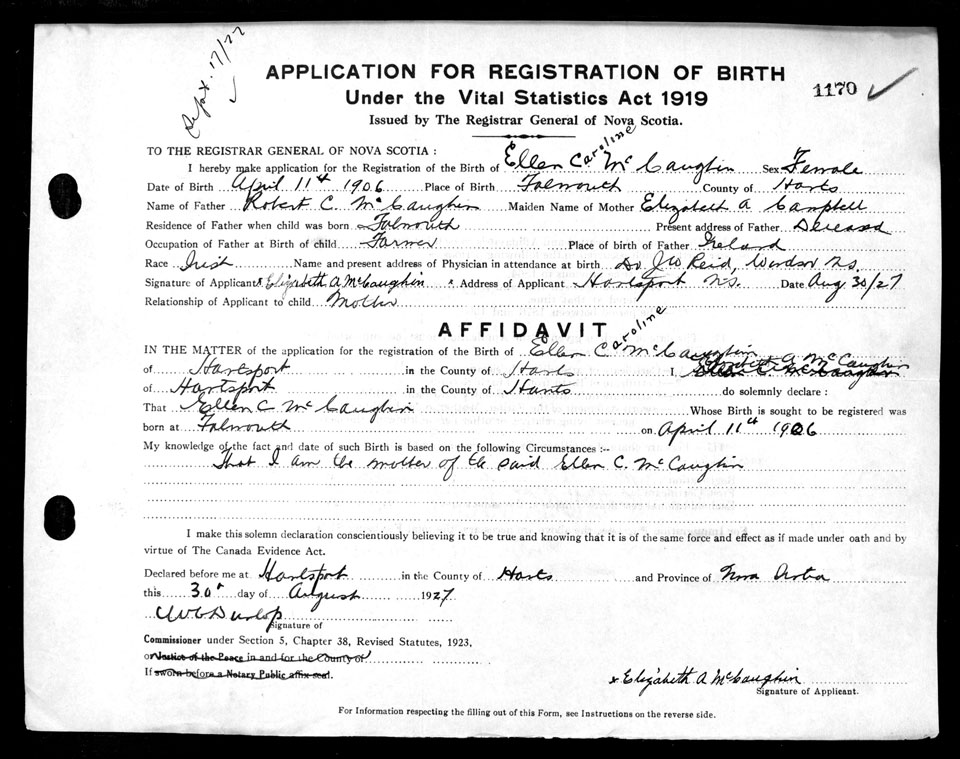 Sept. 17/27
APPLICATION FOR REGISTRATION OF BIRTH
1170
Under the Vital Statistics Act 1919
Issued by The Registrar General of Nova Scotia.
TO THE REGISTRAR GENERAL OF NOVA SCOTIA :
I hereby make application for the Registration of the Birth of Ellen Caroline McCaughin Sex Female
Date of Birth April 11th 1906 Place of Birth Falmouth County of Hants
Name of Father Robert C. McCaughin Maiden Name of Mother Elizabeth A Campbell
Residence of Father when child was born Falmouth Present address of Father Deceased
Occupation of Father at Birth of child Farmer Place of birth of Father Ireland
Race Irish Name and present address of Physician in attendance at birth Dr J W Reid, Windsor N.S.
Signature of Applicant x Elizabeth A McCaughin Address of Applicant Hantsport N.S. Date Aug 30/27
Relationship of Applicant to child Mother
AFFIDAVIT
IN THE MATTER of the application for the registration of the Birth of Ellen Caroline McCaughin
of Hantsport in the County of Hants I, Elizabeth A McCaughin
of Hantsport in the County of Hants do solemnly declare :
That Ellen C McCaughin Whose Birth is sought to be registered was
born at Falmouth on April 11th 1906
My knowledge of the fact and date of such Birth is based on the following Circumstances :--
That I am the mother of the said Ellen C. McCaughin
I make this solemn declaration conscientiously believing it to be true and knowing that it is of the same force and effect as if made under oath and by
virtue of The Canada Evidence Act.
Declared before me at Hantsport in the County of Hants and Province of Nova Scotia
this 30th day of August 1927
Dunlop
Signature of
Commissioner under Section 5, Chapter 38, Revised Statutes, 1923,
or Justice of the Peace in and for the County of
If sworn before a Notary Public affix seal.
x Elizabeth A McCaughin
Signature of Applicant.
For Information respecting the filling out of this Form, see Instructions on the reverse side.